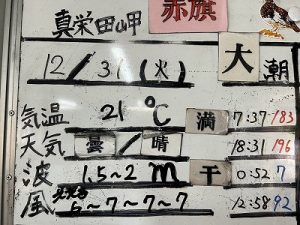 真栄田岬 赤旗
12/31(火) 大潮
気温 21℃ 満 7:37 183
天気 曇/晴 18:31 196
波 1.5~2m 干 0:52 7
風 6~7~7~7 12:58 92